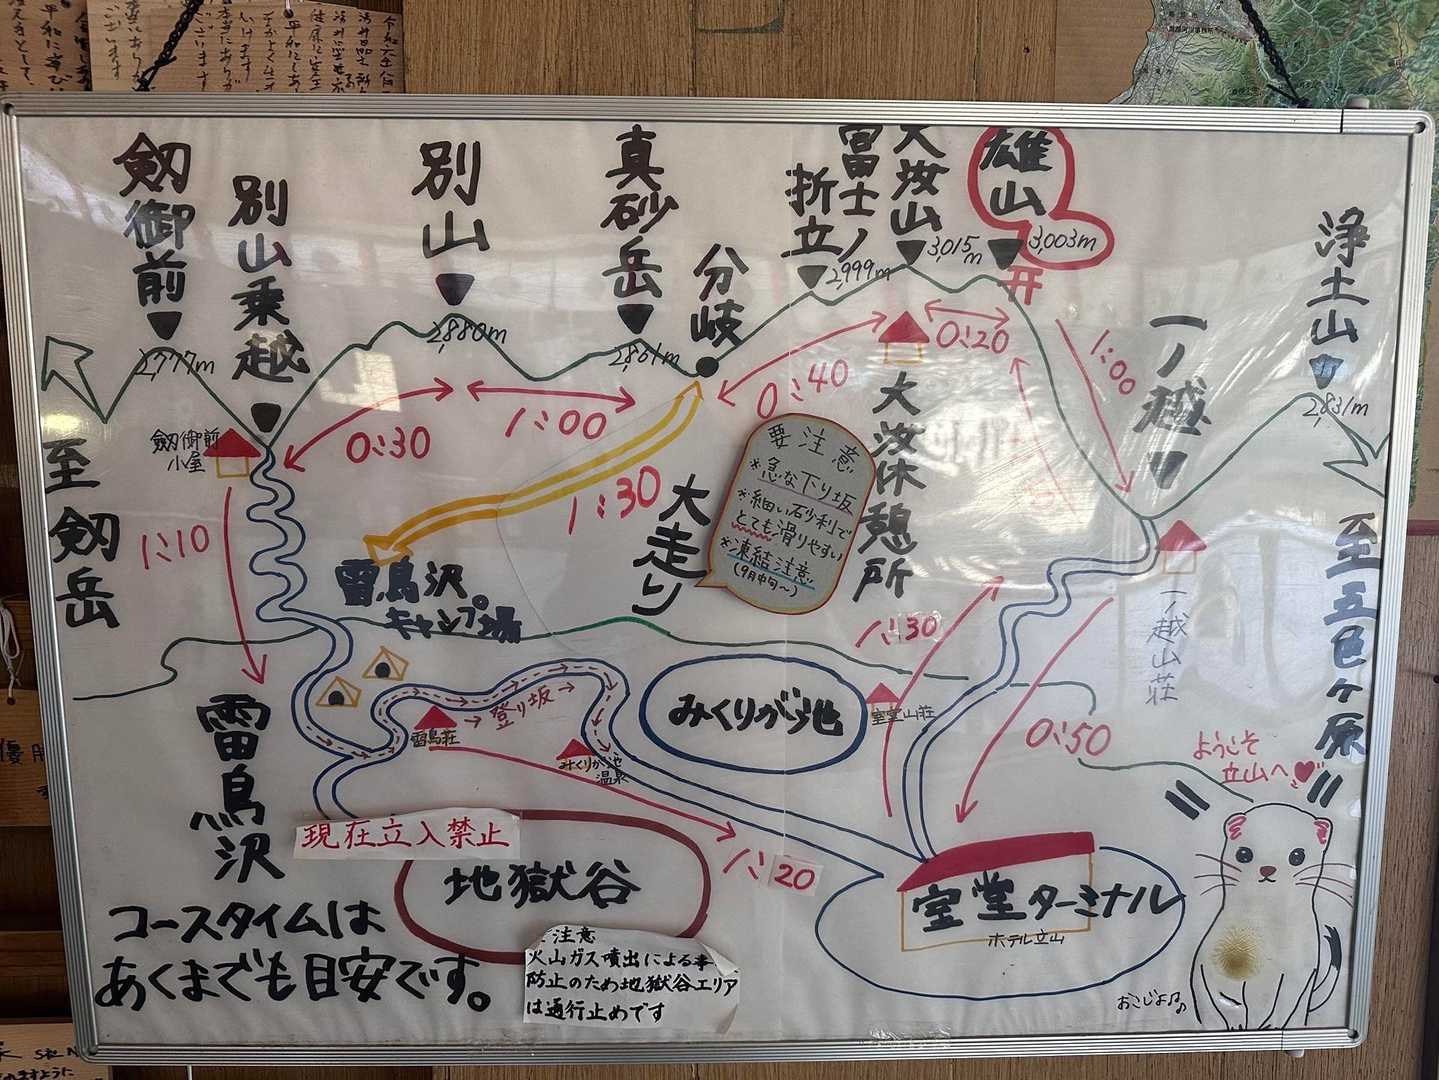 剱御前
2,777m
別山乗越
別山
2,880m
真砂岳
2,861m
分岐
富士ノ折立
2,999m
大汝山
3,015m
雄山
3,003m
浄土山
2,831m
一ノ越
至剱岳
剱御前小屋
0:30
1:00
0:40
0:20
1:00
1:10
1:30
大走り
要注意
*急な下り坂
*細い砂利で
とても滑りやすい
*凍結注意
(9月中旬〜)
大汝休憩所
一ノ越山荘
至五色ヶ原
雷鳥沢
キャンプ場
雷鳥沢
雷鳥荘
→登り坂→
みくりが池
温泉
みくりが池
室堂山荘
1:30
0:50
1:20
現在立入禁止
地獄谷
注意
火山ガス噴出による事
防止のため地獄谷エリア
は通行止めです
室堂ターミナル
ホテル立山
ようこそ
立山へ
おこじょ
コースタイムは
あくまでも目安です。